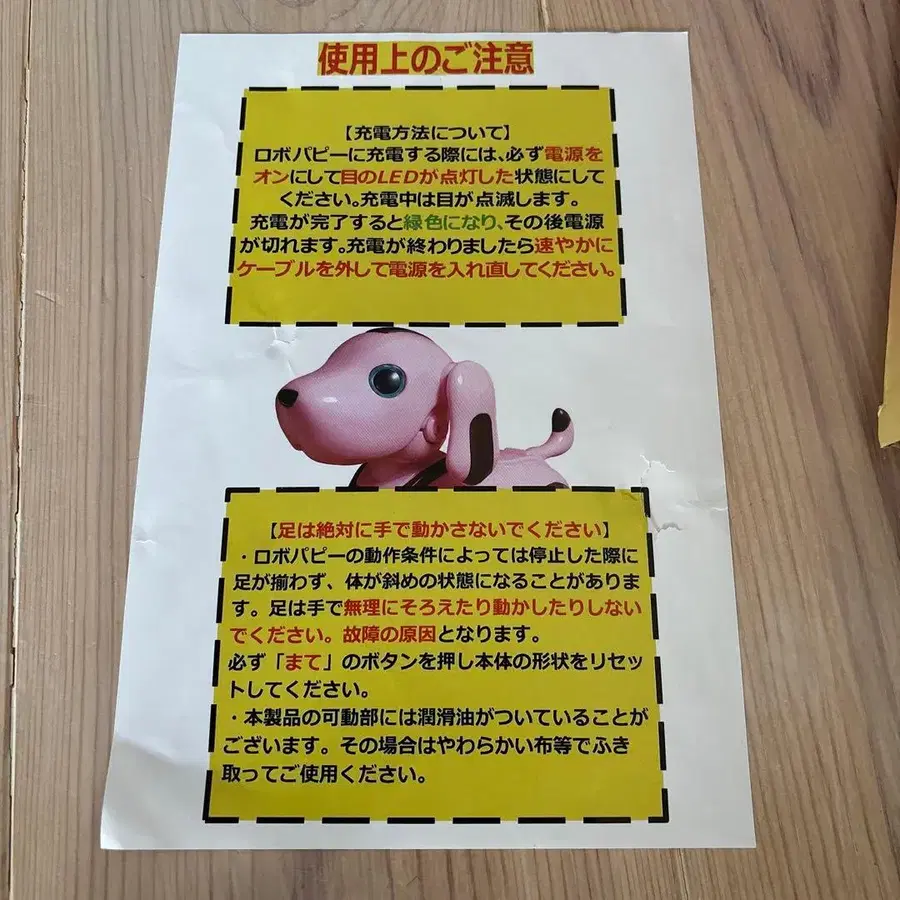 使用上のご注意
【充電方法について】
ロボパピーに充電する際には、必ず電源を
オンにして目のLEDが点灯した状態にして
ください。充電中は目が点滅します。
充電が完了すると緑色になり、その後電源
が切れます。充電が終わりましたら速やかに
ケーブルを外して電源を入れ直してください。
【足は絶対に手で動かさないでください】
・ロボパピーの動作条件によっては停止した際に
足が揃わず、体が斜めの状態になることがありま
す。足は手で無理にそろえたり動かしたりしない
でください。故障の原因となります。
必ず「まて」のボタンを押し本体の形状をリセッ
トしてください。
・本製品の可動部には潤滑油がついていることが
ございます。その場合はやわらかい布等でふき
取ってご使用ください。